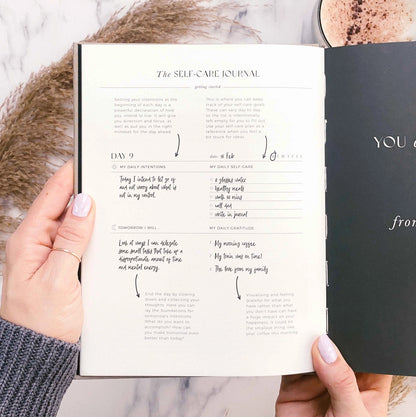 The SELF-CARE JOURNAL
getting started
Setting your intentions at the
beginning of each day is a
powerful declaration of how
you intend to live. It will give
you direction and focus, as
well as put you in the right
mindset for the day ahead.
This is where you can keep
track of your self-care goals.
These can vary day to day,
so the list is intentionally
left empty for you to fill out.
Use your self-care plan as a
reference when you feel a
bit stuck for ideas.
DAY 9
DATE: 18 Feb
MY DAILY INTENTIONS
Today I intend to let go of
and not worry about what is
not in my control.
MY DAILY SELF-CARE
8 glasses water
healthy meals
walk 30 mins
call dad
write in journal
TOMORROW I WILL
Look at ways I can delegate
some small tasks that take up a
disproportionate amount of time
and mental energy.
MY DAILY GRATITUDE
My morning coffee
My train was on time!
The love from my family
End the day by slowing
down and collecting your
thoughts. Here you can
lay the foundations for
tomorrow's intentions.
What do you want to
accomplish? How can
you make tomorrow even
better than today?
Visualising and feeling
grateful for what you
have rather than what
you don't have can have
a huge impact on your
happiness. It could be
the smallest thing like
your coffee this morning.
YOU
from